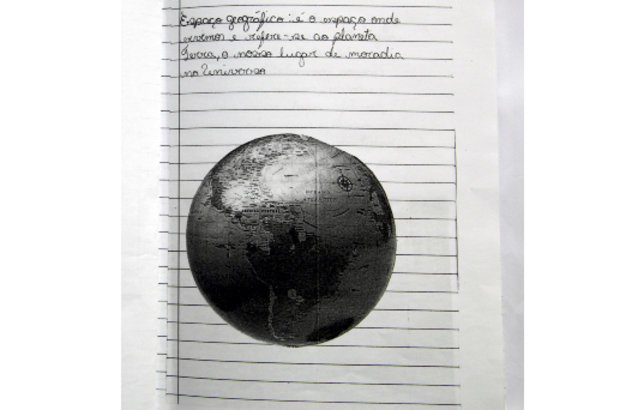 Espaço geográfico: é o espaço onde
vivemos e refere-se ao planeta
Terra, o nosso lugar de moradia
no Universo